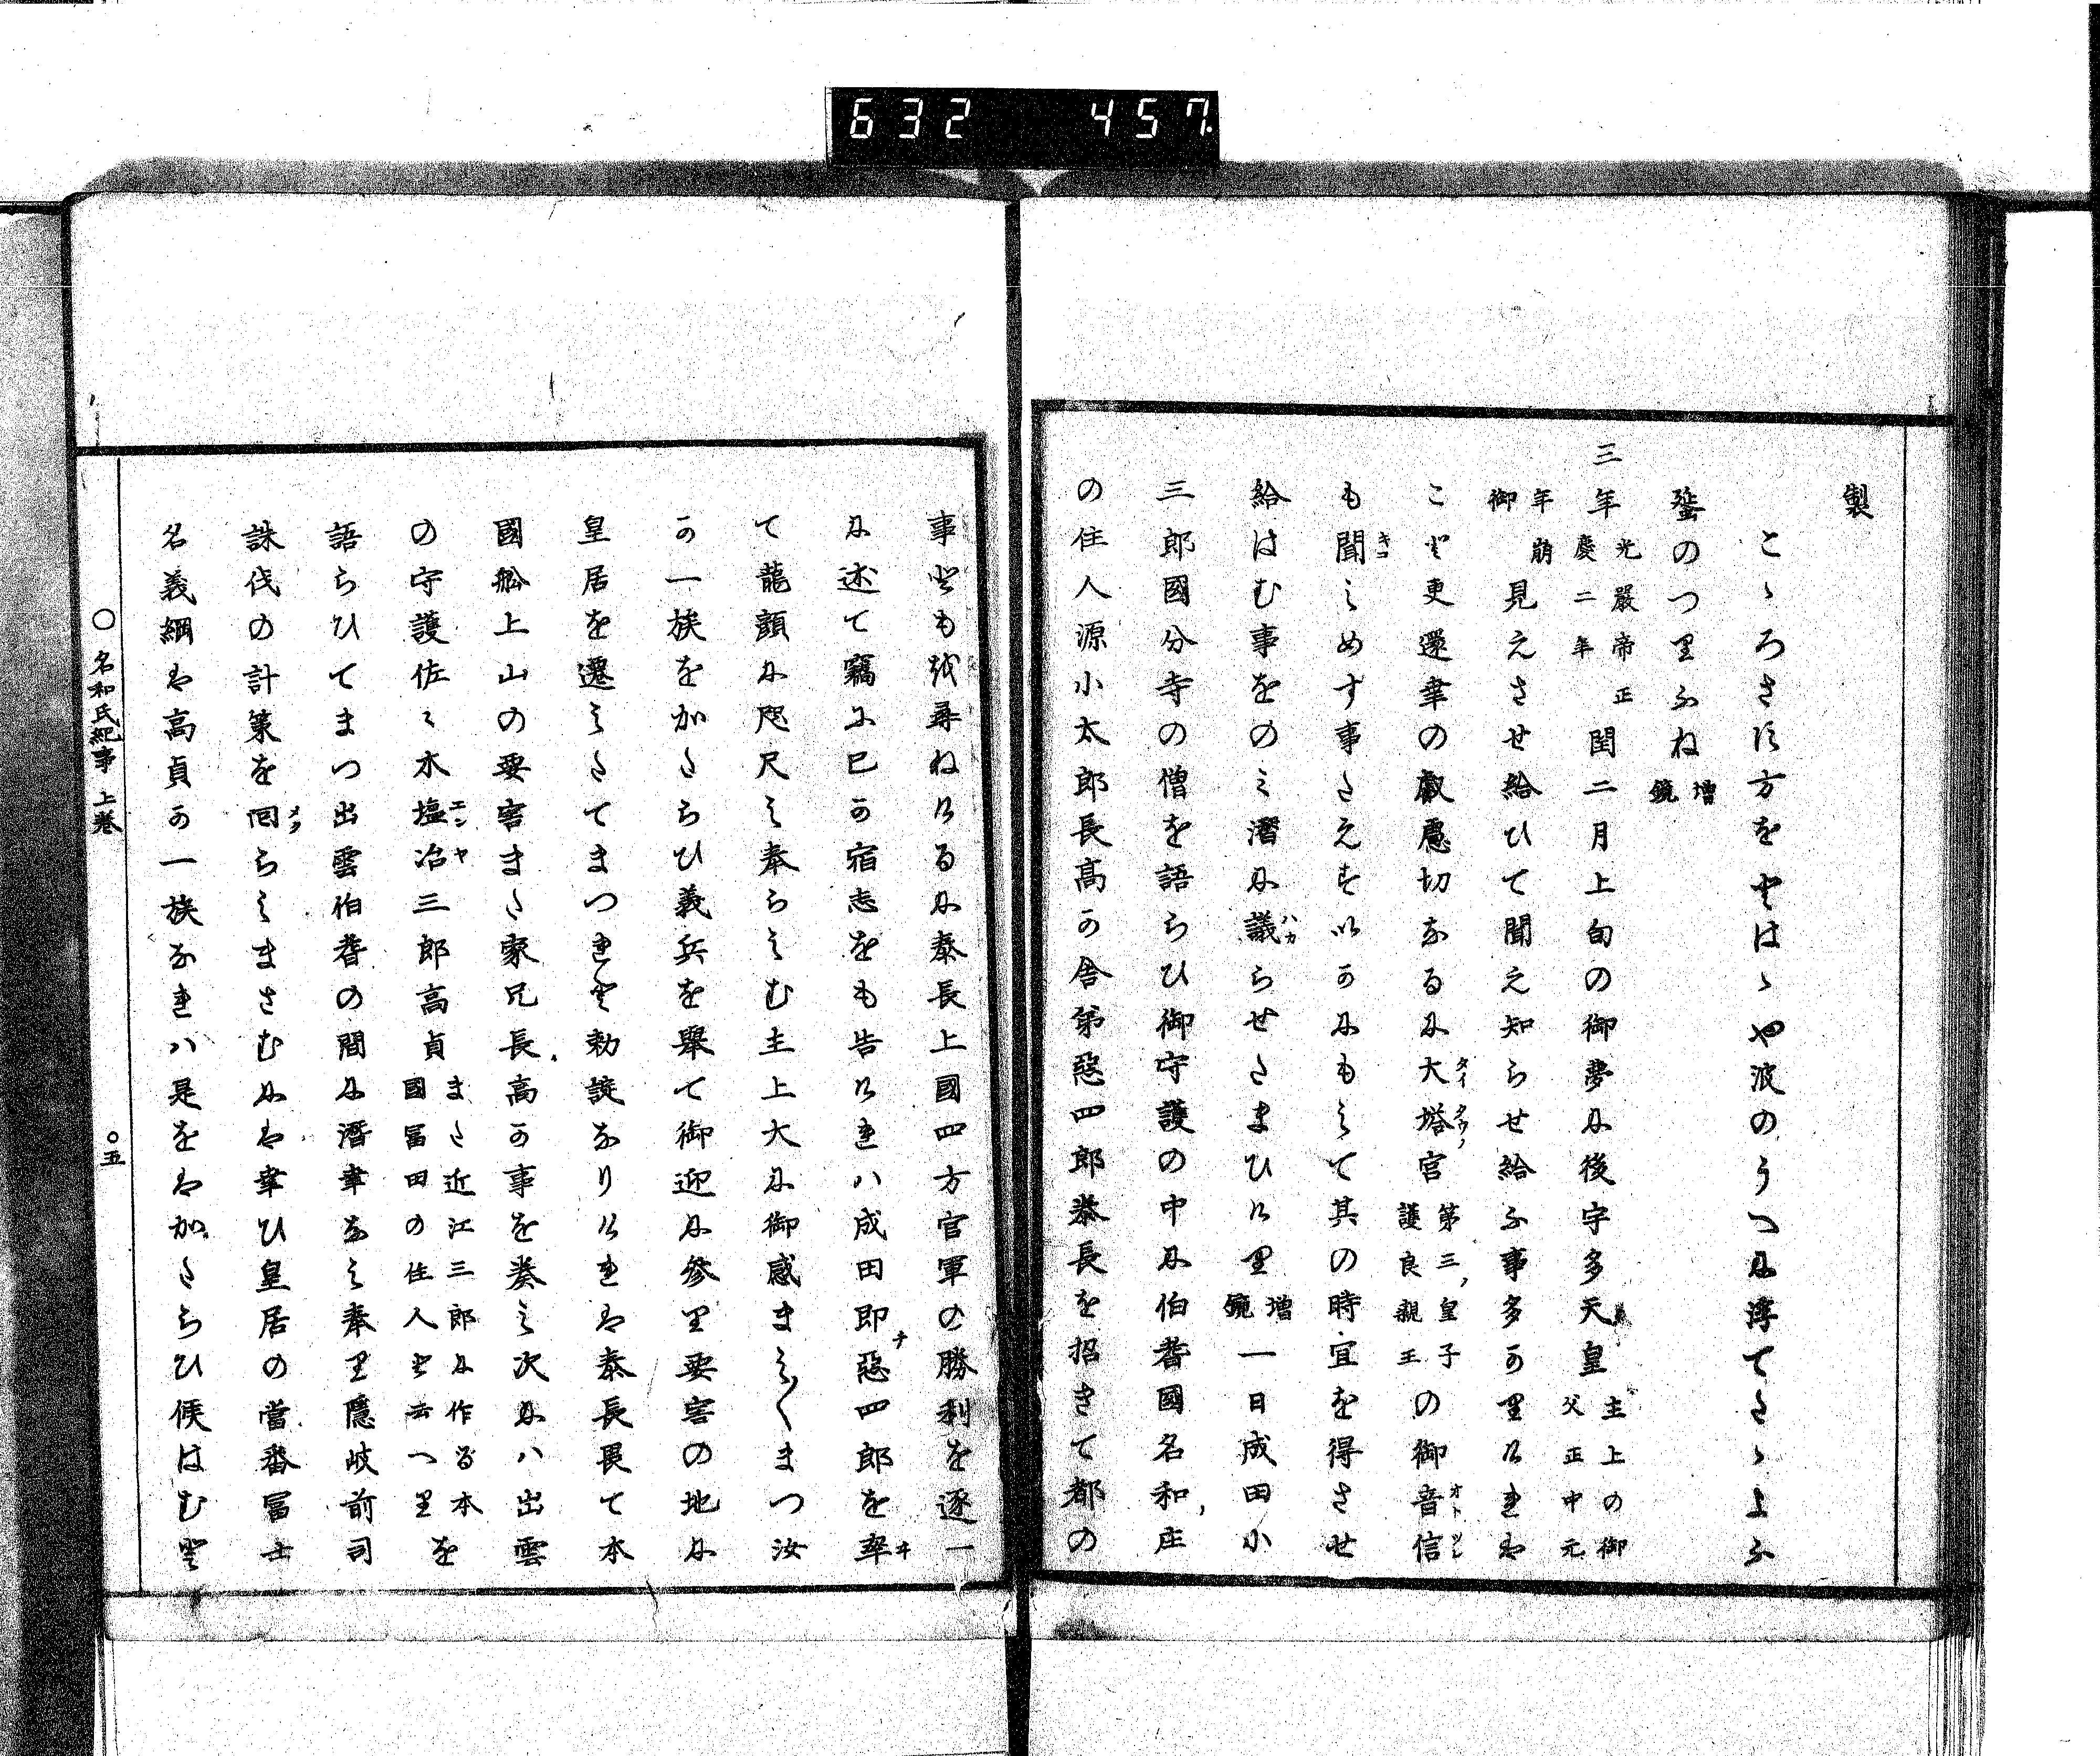 632 457
製
こゝろさす方をとはゝや波のうつに浮てたゝよふ
蜑のつりふね 増鏡
三年 光嚴帝正慶二年 閏二月上旬の御夢に後宇多天皇 主上の御父正中元
年崩御 見えさせ給ひて聞え知らせ給ふ事多かりけれは
こと更還幸の叡慮切なるに大塔宮 第三皇子護良親王 の御音信
も聞しめす事たえすいかにもして其の時宜を得させ
給はむ事をのミ潛に議らせたまひけり 増鏡 一日成田小
三郎國分寺の僧を語らひ御守護の中に伯耆國名和庄
の住人源小太郎長高か舎第惡四郎泰長を招きて都の
事とも或尋ねけるに泰長上國四方官軍の勝利を逐一
に述て竊に已か宿志をも告けれハ成田即チ惡四郎を率ヰ
て龍顔に咫尺し奉らしむ主上大に御感まし〳〵まつ汝
か一族をかたらひ義兵を舉て御迎に參り要害の地に
皇居を遷したてまつれと勅諚なりけれは泰長畏て本
國舩上山の要害また家兄長高か事を奏し次にハ出雲
の守護佐々木塩冶三郎高貞 また近江三郎に作る本國冨田の住人と云つり を
語らひてまつ出雲伯耆の間に潛幸なし奉り隱岐前司
誅伐の計策を囘らしまさむにハ幸ひ皇居の當番冨士
名義綱ハ高貞か一族なれハ是をハかたらひ候はむと
○名和氏紀事 上巻 ○五